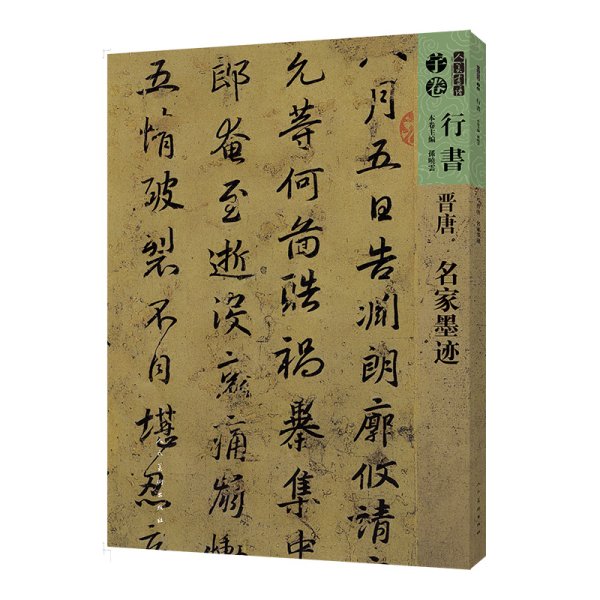 子卷
行書
本卷主編 孫曉雲
晋唐 名家墨迹
八月五日告渊朗廓攸靖
允等何圖酷禍暴集中
郎奄至逝没哀痛崩慟
五情破裂不自堪忍
人民美術出版社
行書